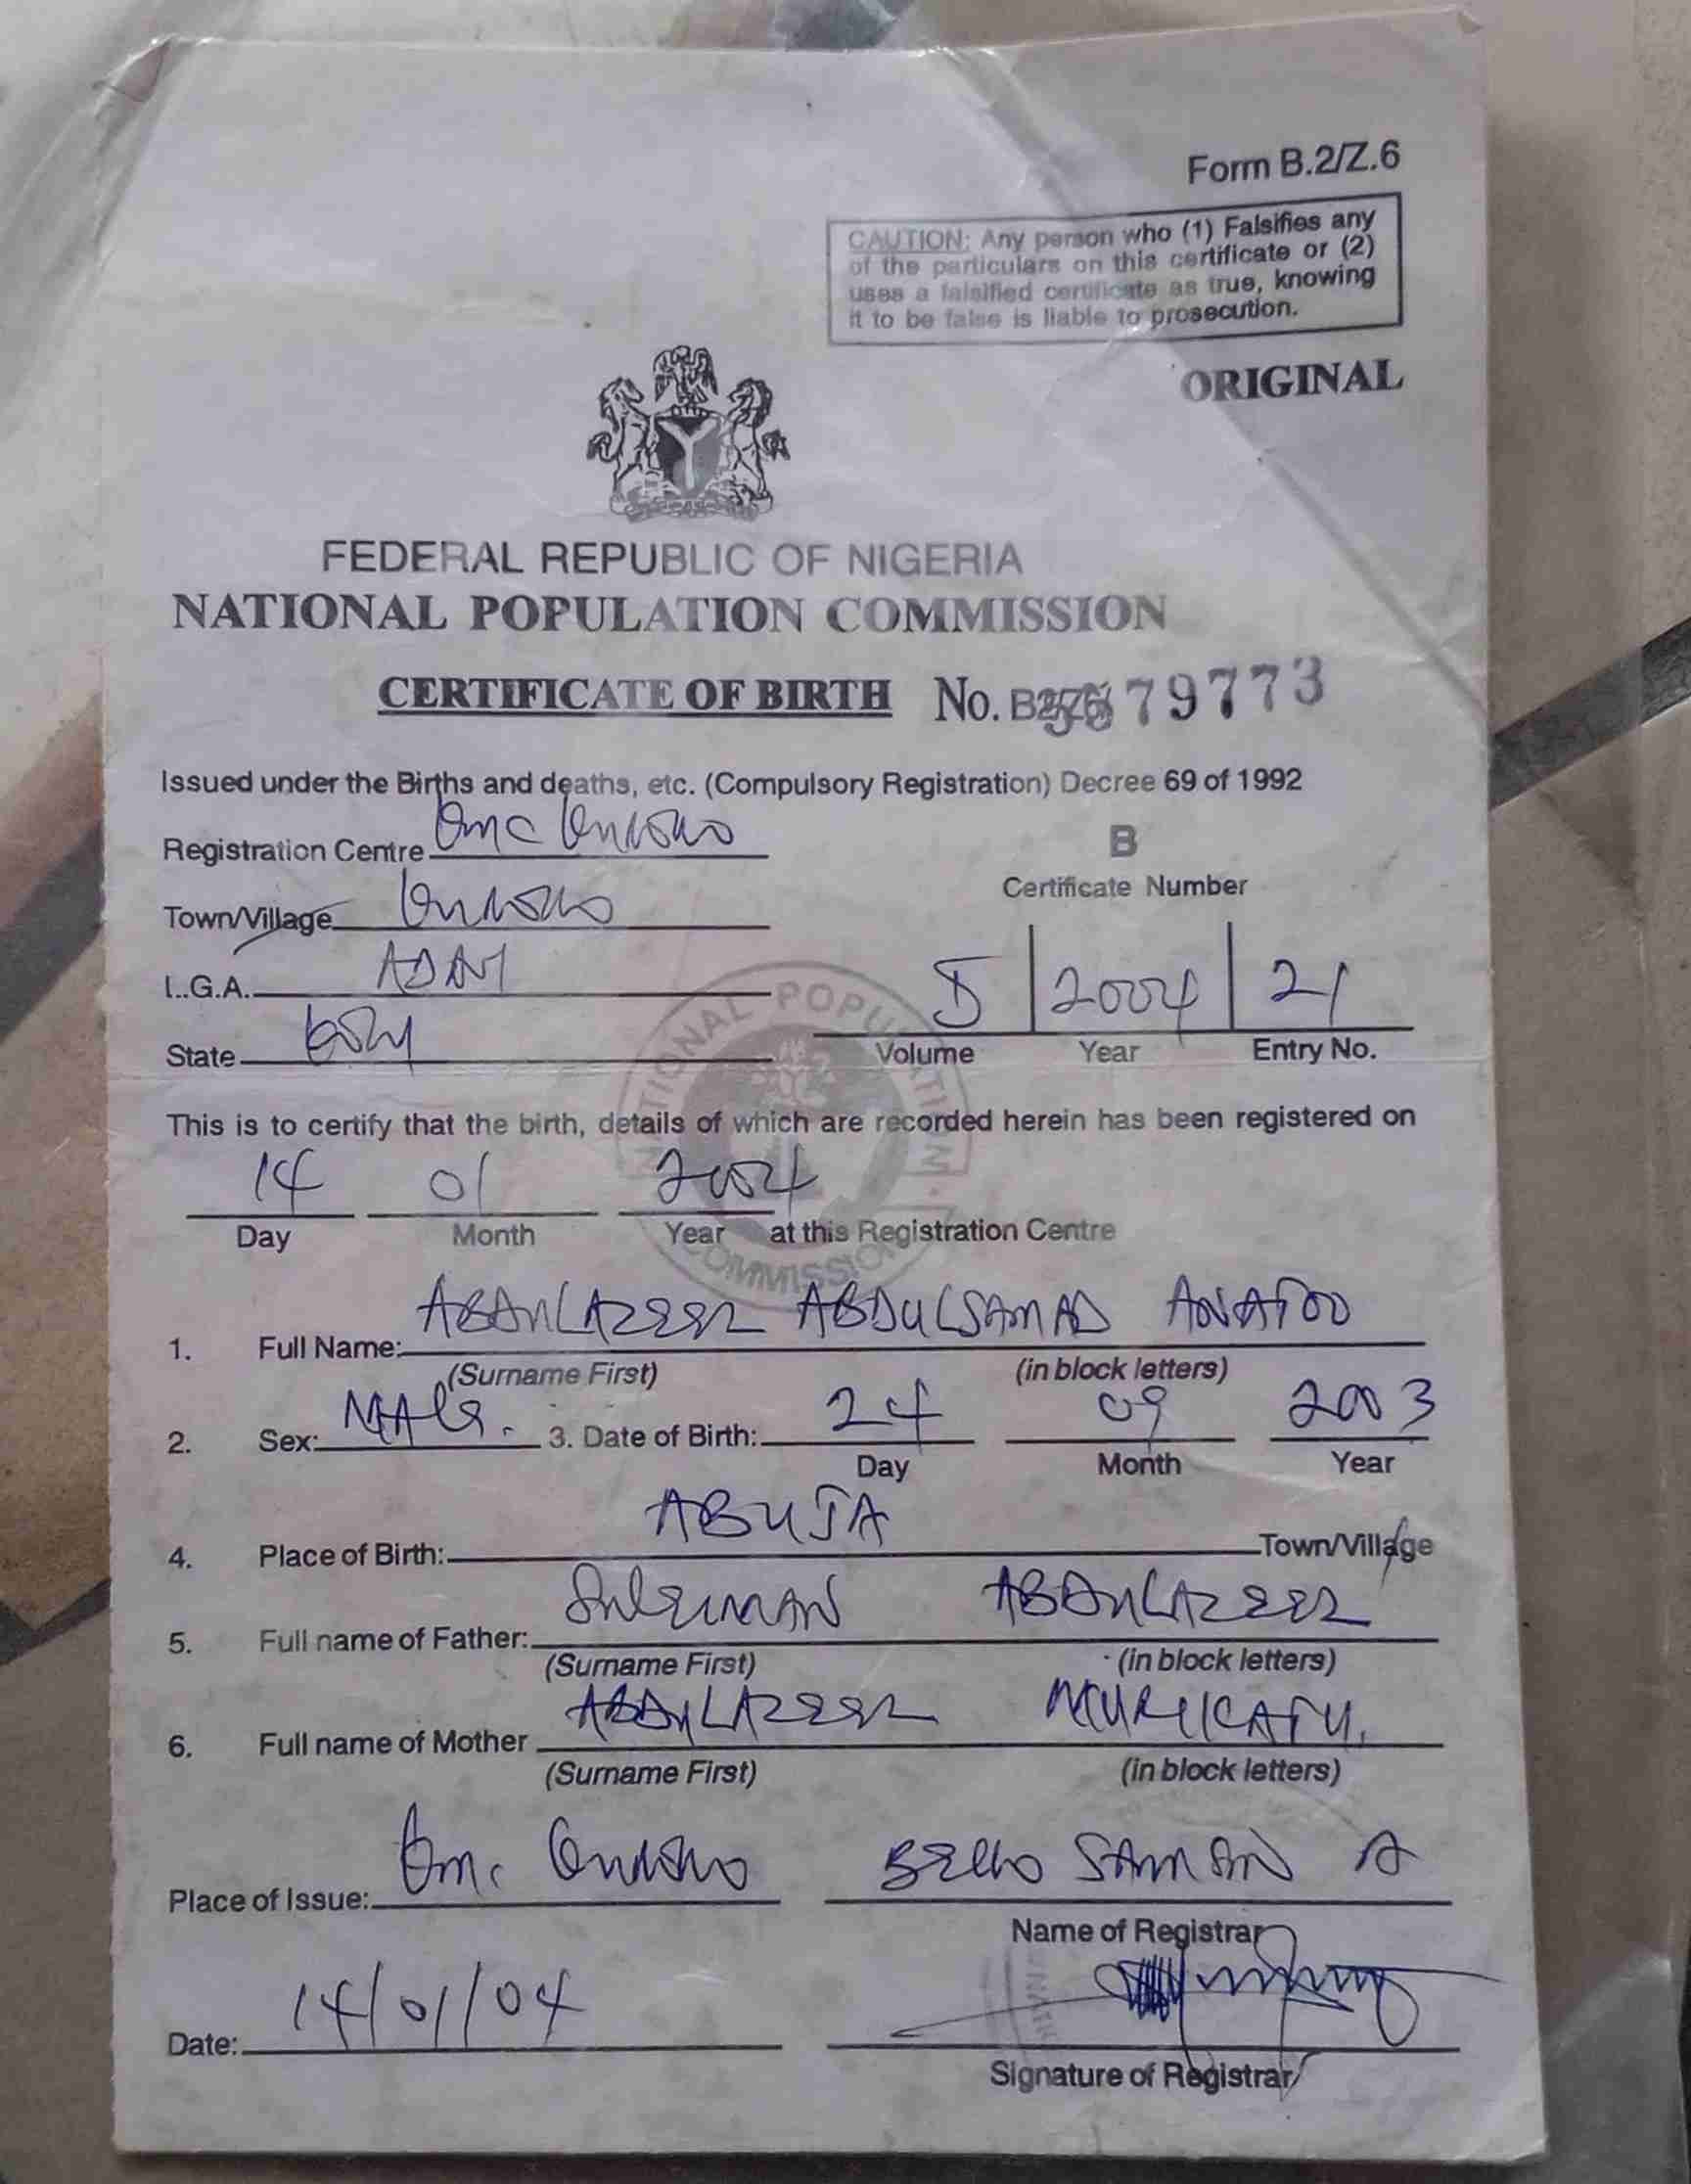 Form B.2/Z.6
CAUTION: Any person who (1) Falsifies any
of the particulars on this certificate or (2)
uses a falsified certificate as true, knowing
it to be false is liable to prosecution.
ORIGINAL
FEDERAL REPUBLIC OF NIGERIA
NATIONAL POPULATION COMMISSION
CERTIFICATE OF BIRTH No. 79773
Issued under the Births and deaths, etc. (Compulsory Registration) Decree 69 of 1992
Registration Centre
B
Certificate Number
Town/Village
L.G.A.
State
5 2004 21
Volume Year Entry No.
NATIONAL POPULATION COMMISSION
This is to certify that the birth, details of which are recorded herein has been registered on
14 01 2004
Day Month Year at this Registration Centre
1. Full Name: ABDULAZEEZ ABDULSAMAD
(Surname First) (in block letters)
2. Sex: MALE. 3. Date of Birth: 24 09 2003
Day Month Year
4. Place of Birth: ABUJA Town/Village
5. Full name of Father: SULEIMAN ABDULAZEEZ
(Surname First) (in block letters)
6. Full name of Mother ABDULAZEEZ
(Surname First) (in block letters)
Place of Issue: BELLO A
Name of Registrar
Date: 14/01/04
Signature of Registrar